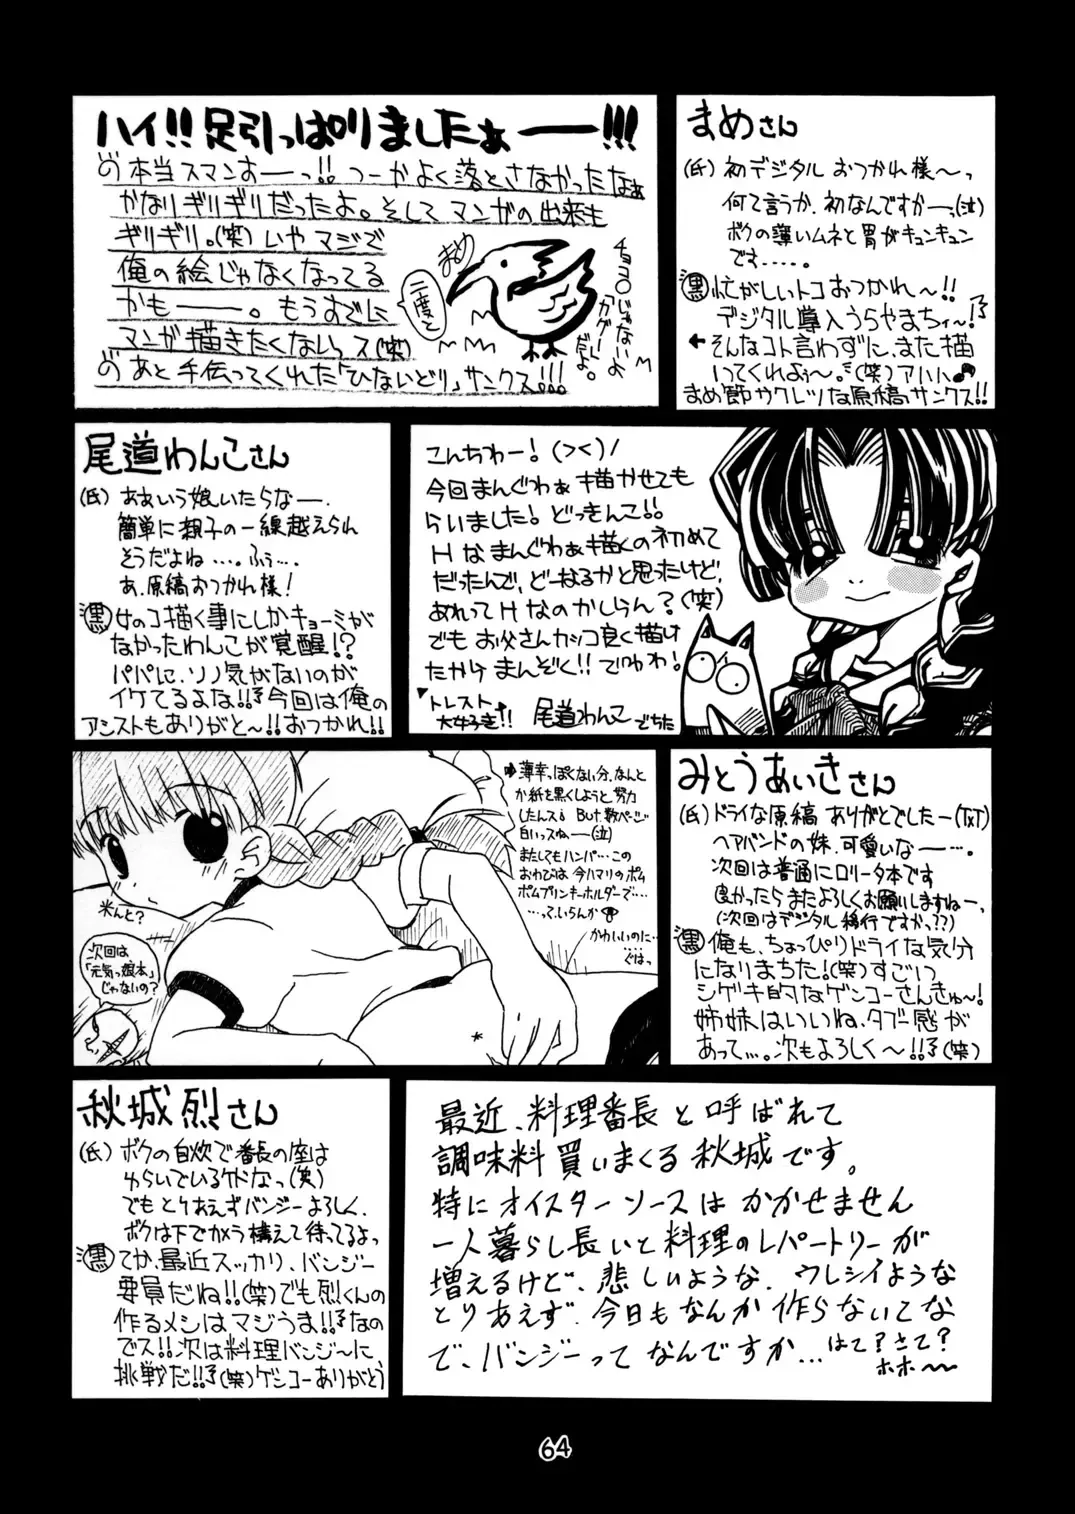 ハイ!!足引っぱりましたぁー!!!
本当スマンおーっ!!つーかよく落とさなかったなぁ
かなりギリギリだったよ。そしてマンガの出来も
ギリギリ。(笑)いやマジで
俺の絵じゃなくなってる
かもー。もうすでに
マンガ描きたくないっス(笑)
あと手伝ってくれた「ひないどり」サンクス!!!
まめ
二度と
チョコロじゃないよ
「カゲー」だよ。
まめさん
(氏)初デジタルおつかれ様〜っ
何て言うか、初なんですかーっ(泣)
ボクの薄いムネと胃がキュンキュン
です....。
(黒)忙がしいトコおつかれ〜!!
デジタル導入うらやまちぃ〜!
←そんなコト言わずに、また描
いってくれよぅ〜。(笑)アハハ♪
まめ節サクレツな原稿サンクス!!
尾道わんこさん
(氏)ああいう娘いたらなー.
簡単に親子の一線越えられ
そうだよね....ふぅ...
あ、原稿おつかれ様!
(黒)女のコ描く事にしかキョーミが
なかったわんこが覚醒!?
パパに、ソノ気がないのが
イケてるよな!!今回は俺の
アシストもありがと〜!!おつかれ!!
こんちわー!(>く)/
今回まんぐわぁ描かせても
らいました!どっきんこ!!
Hなまんぐわぁ描くの初めて
だったんで、どーなるかと思ったけど、
あれってHなのかしらん?(笑)
でもお父さんカッコ良く描け
たかけまんぞく!!でわわ!
トレスト
大好き!! 尾道わんこでちた
薄幸っぽくない分、なんと
か紙を黒くしようと努力
したんス But.数ページ
白いっスねー(泣)
またしてもハンパ...この
おわびは今ハマりのポム
ポムプリンキーホルダーで....
...っていらんか
かわいいのに...
ぐはっ
米んと?
次回は、
「元気っ娘本」
じゃないの?
みとうあいきさん
(氏)ドライな原稿ありがとでしたー(TxT)
ヘアバンドの妹、可愛いなー...。
次回は普通にロリータ本です
良かったらまたよろしくお願いしますねーっ
(次回はデジタル移行ですかっ??)
(黒)俺も、ちょっぴりドライな気分
になりまちた!(笑)すごいっ
シゲキ的なゲンコーさんきゅ〜!
姉妹はいいね、タブー感が
あって...。次もよろしく〜!!(笑)
秋城烈さん
(氏)ボクの自炊で番長の座は
ゆらいでいるケドなっ(笑)
でもとりあえずバンジーよろしく.
ボクは下でカメラ構えて待ってるよっ
(黒)てか、最近スッカリ、バンジー
要員だね!!(笑)でも烈くんの
作るメシはマジうま!!なの
でス!!次は料理バンジ〜に
挑戦だ!!(笑)ゲンコーありがとう
最近、料理番長と呼ばれて
調味料買いまくる秋城です。
特にオイスターソースはかかせません
一人暮らし長いと料理のレパートリーが
増えるけど、悲しいような.ウレシイような
とりあえず.今日もなんか作らないてな
で、バンジーってなんですか...はて?さて?
ホホ〜〜
64